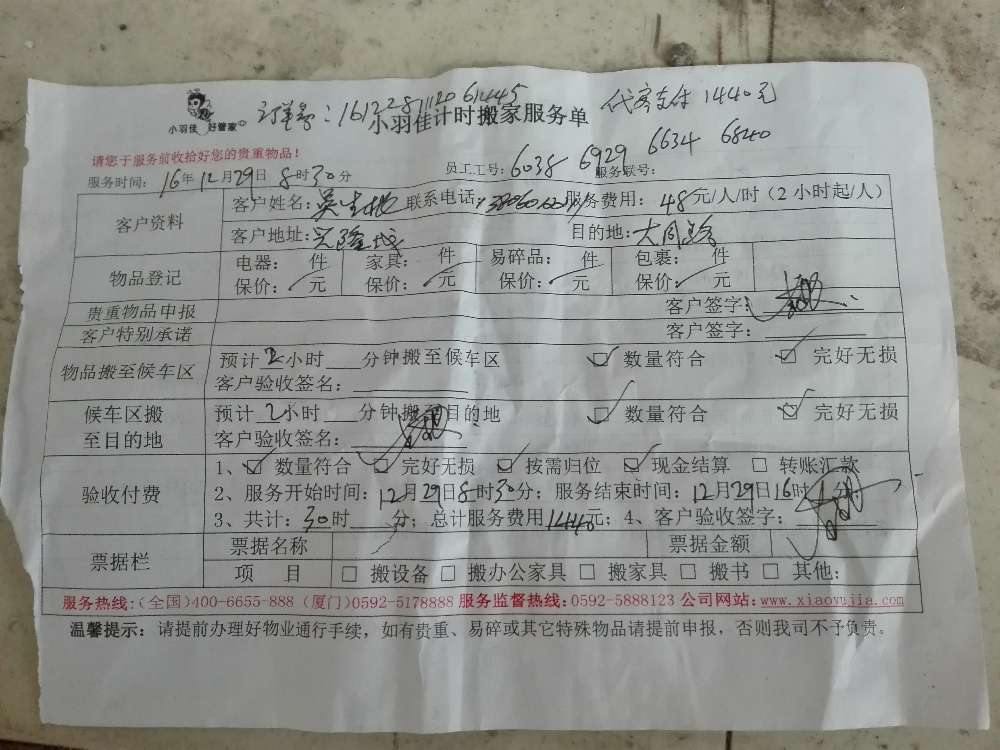 订单号：161228111206 61445 代客支付 1440元
小羽佳 好管家 小羽佳计时搬家服务单
请您于服务前收拾好您的贵重物品！
员工工号：6038 6929 6634 6840
服务时间：16年12月29日8时30分 服务联号：
客户资料 客户姓名：吴 联系电话： 服务费用：48元/人/时（2小时起/人）
客户地址：兴隆 目的地：大同路
物品登记 电器： 件 家具： 件 易碎品： 件 包裹： 件
保价： 元 保价： 元 保价： 元 保价： 元
贵重物品申报 客户签字：
客户特别承诺 客户签字：
物品搬至候车区 预计2小时 分钟搬至候车区 ☑ 数量符合 ☑ 完好无损
客户验收签名：
候车区搬至目的地 预计2小时 分钟搬至目的地 ☑ 数量符合 ☑ 完好无损
客户验收签名：
验收付费 1、☑ 数量符合 ☑ 完好无损 ☑ 按需归位 ☑ 现金结算 □ 转账汇款
2、服务开始时间：12月29日8时30分；服务结束时间：12月29日16时 分；
3、共计：30时 分；总计服务费用1440元；4、客户验收签字：
票据栏 票据名称 票据金额
项 目 □ 搬设备 □ 搬办公家具 □ 搬家具 □ 搬书 □ 其他：
服务热线：（全国）400-6655-888（厦门）0592-5178888 服务监督热线：0592-5888123 公司网站：www.xiaoyujia.com
温馨提示：请提前办理好物业通行手续，如有贵重、易碎或其它特殊物品请提前申报，否则我司不予负责。